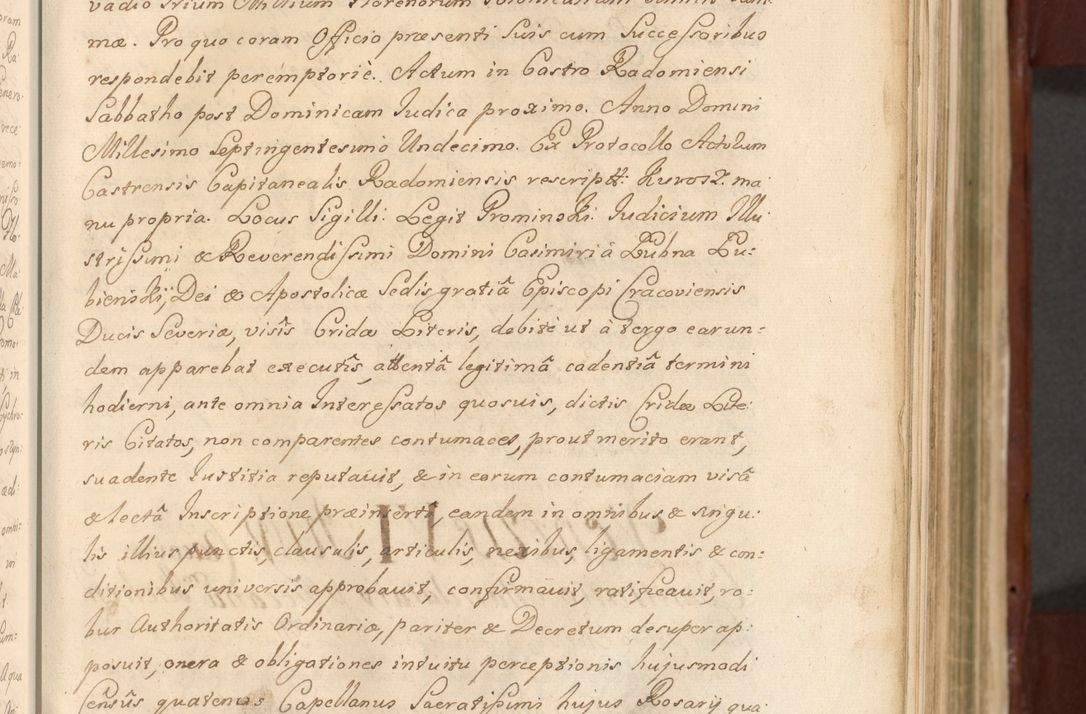 vadio Trium Millium Florenorum Polonicalium
mæ. Pro quo coram Officio præsenti Suis cum Successoribus
respondebit peremptorie. Actum in Castro Radomiensi
Sabbatho post Dominicam Iudica proximo. Anno Domini
Millesimo Septingentesimo Undecimo. Ex Protocollo Actulum
Castrensis Capitanealis Radomiensis rescript: Kurosz. ma
nu propria. Locus Sigilli. Legit Prominski. Iudicium Illu:
strissimi & Reverendissimi Domini Casimiri à Łubna Łu:
bienskij, Dei & Apostolicæ Sedis gratiâ Episcopi Cracoviensis
Ducis Severiæ, visîs Cridæ Literis, debitè ut à tergo earun:
dem apparebat executîs, attentâ legitimâ cadentiâ termini
hodierni, ante omnia Interessatos quosvis, dictis Cridæ Lite:
ris Citatos, non comparentes contumaces, prout merito erant,
suadente Iustitia reputavit, & in eorum contumaciam visâ
& lectâ Inscriptione præinserti, eandem in omnibus & singu:
lis illius punctis, clausulis, articulis, nexibus, ligamentis & con:
ditionibus universis approbavit, confirmavit, ratificavit, ro:
bur Authoritatis Ordinariæ, pariter & Decretum desuper ap:
posuit, onera & obligationes intuitu perceptionis hujusmodi
Censûs quatenus Capellanus Sacratissimi hujus Rosarij qua